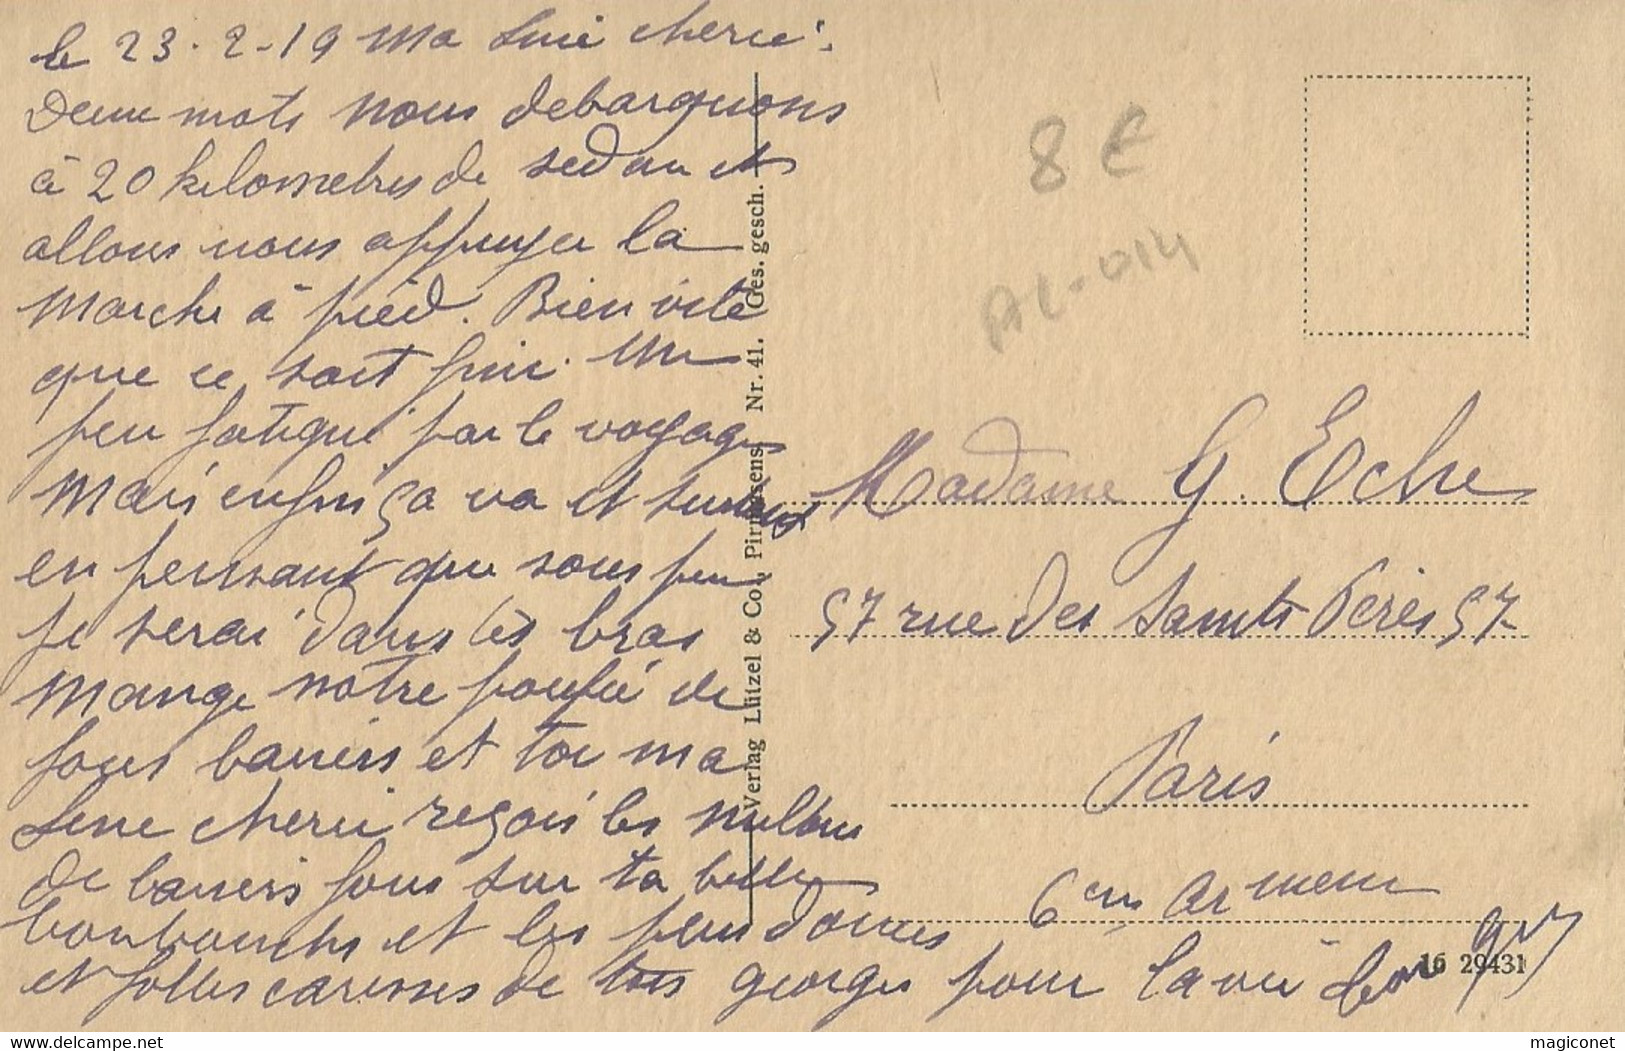 le 23-2-19 Ma  cherie.
Deux mots nous debarquons
à 20 kilometres de sedan et
allons nous appuyer la
marche à pied. Bien vite
que ce soit fini. Un
peu fatigué par le voyage
Mais enfin ça va et surtout
en pensant que sous peu
je serai dans tes bras
Mange notre poulé de
fous baisers et toi ma
 cherie reçois les millions
de baisers fous sur ta belle
bouche et les plus douces
et folles caresses de ton georges pour la vie
georges
8 €
AL-014
Madame G. Eche
57 rue des Saints Pères 57
Paris
6em Ar
Verlag Lützel & Co., Pirmasens. Nr. 41. Ges. gesch.
16 29431
delcampe.net
magiconet